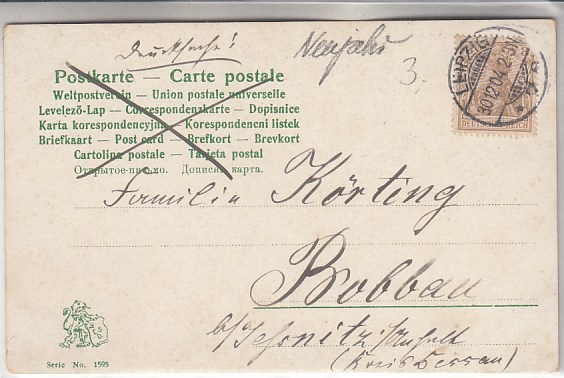 Drucksache! Neujahr
3.-
Postkarte — Carte postale
Weltpostverein — Union postale universelle
Levelező-Lap — Correspondenzkarte — Dopisnice
Karta korespondencyjna — Korespondeneni listek
Briefkaart — Post card — Brefkort — Brevkort
Cartolina postale — Tarjeta postal
Открытое письмо. Дописна карта.
LEIPZIG
30 12 04 2-3
DEUTSCHES REICH
Familie Körting
Bobbau
b/Jessnitz i/Anhalt
(Kreis Dessau)
Serie No. 1595